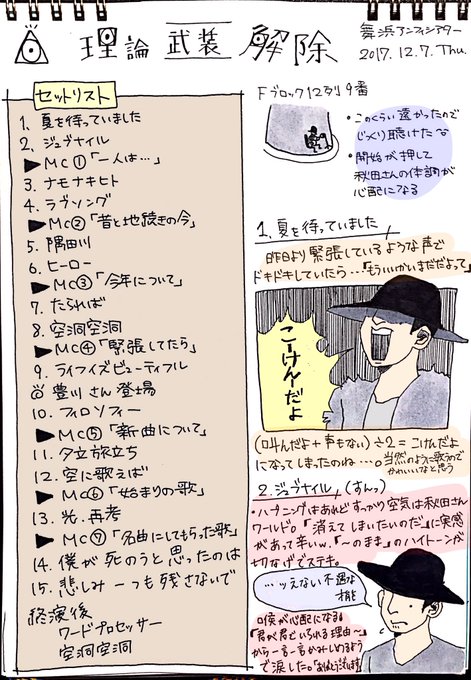 理論武装解除
舞浜アンフィシアター
2017.12.7.Thu.
セットリスト
1. 夏を待っていました
2. ジュブナイル
▶MC①「一人は…」
3. ナモナキヒト
4. ラブソング
▶MC②「昔と地続きの今」
5. 隅田川
6. ヒーロー
▶MC③「今年について」
7. たられば
8. 空洞空洞
▶MC④「緊張してたら」
9. ライフイズビューティフル
豊川さん登場
10. フィロソフィー
▶MC⑤「新曲について」
11. 夕立旅立ち
12. 空に歌えば
▶MC⑥「始まりの歌」
13. 光、再考
▶MC⑦「名曲にしてもらった歌」
14. 僕が死のうと思ったのは
15. 悲しみ一つも残さないで
終演後
ワードプロセッサー
空洞空洞
Fブロック12列9番
・このくらい遠かったので
じっくり聴けた〜
・開始が押して
秋田さんの体調が
心配になる
1. 夏を待っていました
昨日より緊張しているような声で
ドキドキしていたら…「もういいかいまだだよって」
こーけんだよ
(叫んだよ+声もない)÷2=こけんだよ
になってしまったのね…。当然のように歌うので
かわいいなと思う
2. ジュブナイル (すんっ)
・ハプニングはあれどすっかり空気は秋田さん
ワールド。「消えてしまいたいのだ」に実感
があって辛いw.「〜のまま」のハイトーンが
切なげでステキ。
…ッえない不遇な
才能
喉が心配になる
「君が君でいられる理由〜」
から一言一言かみしめるよう
で涙した。「ありがとうございます」